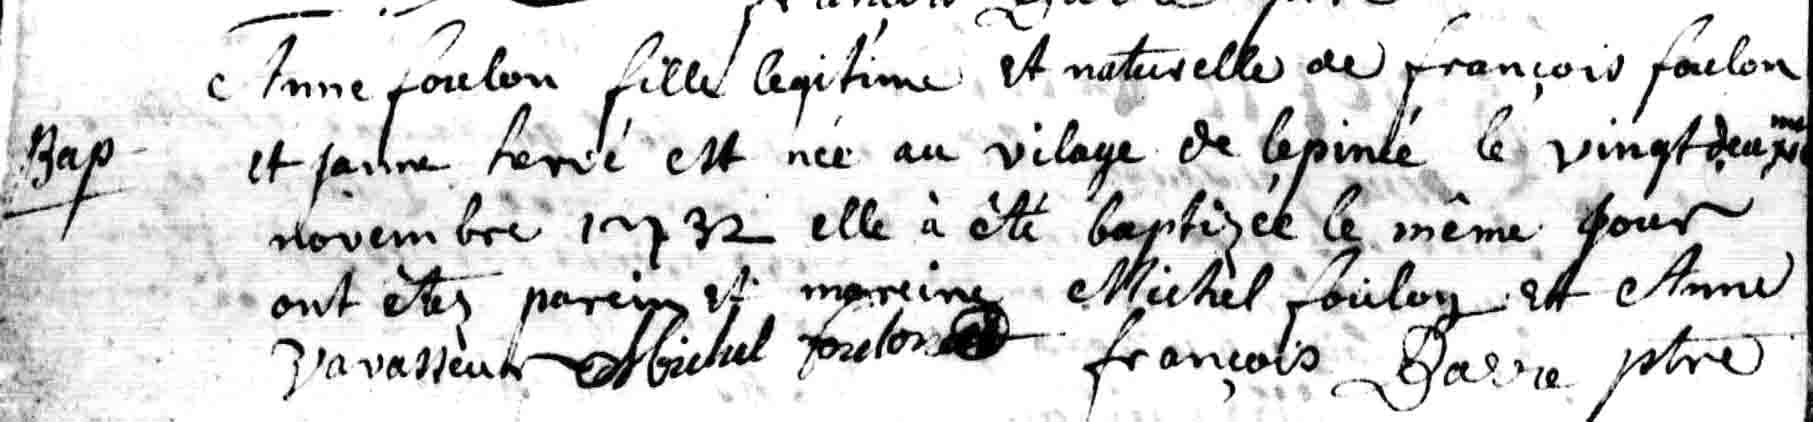 Anne foulon fille legitime et naturelle de françois foulon
Bap
et janne hervé est née au vilage de lepiné le vingt deuxme
novembre 1732 elle à été baptizée le même jour
ont étez parein et mareine Michel foulon et Anne
Vavasseur Michel foulon françois ptre